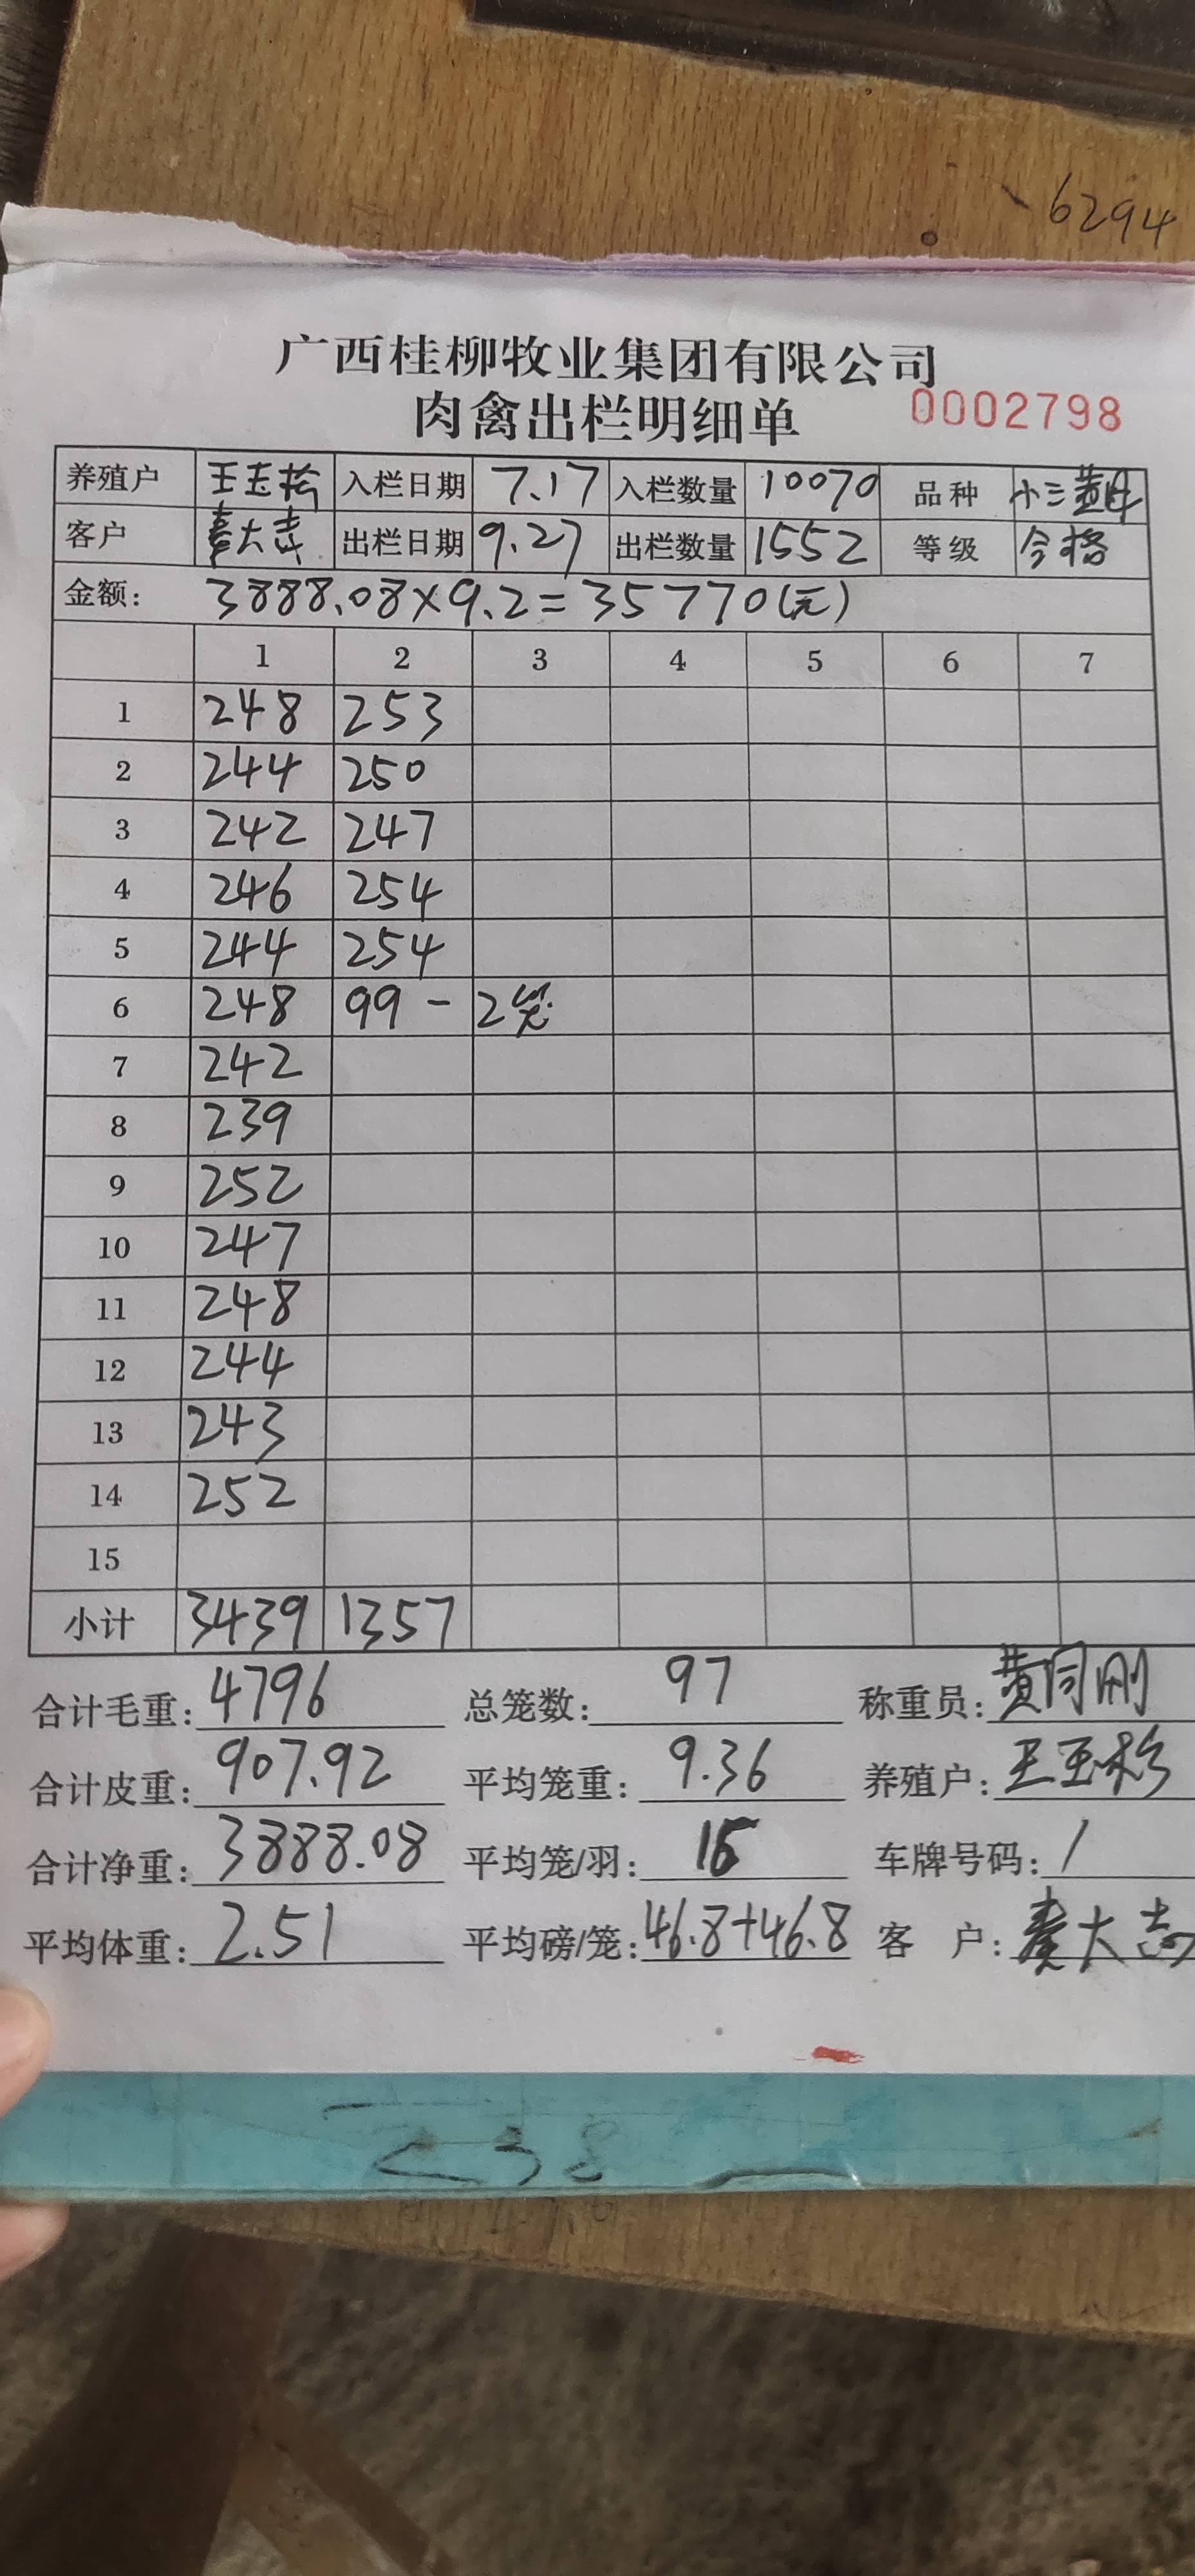 6294
广西桂柳牧业集团有限公司
肉禽出栏明细单 0002798
养殖户 王玉杉 入栏日期 7.17 入栏数量 10070 品种 小三黄母
客户 秦大志 出栏日期 9.27 出栏数量 1552 等级 合格
金额: 3888.08×9.2=35770(元)
1 2 3 4 5 6 7
1 248 253
2 244 250
3 242 247
4 246 254
5 244 254
6 248 99 - 2笼
7 242
8 239
9 252
10 247
11 248
12 244
13 243
14 252
15
小计 3439 1357
合计毛重: 4796 总笼数: 97 称重员: 黄同刚
合计皮重: 907.92 平均笼重: 9.36 养殖户: 王玉杉
合计净重: 3888.08 平均笼/羽: 16 车牌号码: /
平均体重: 2.51 平均磅/笼: 46.8+46.8 客 户: 秦大志